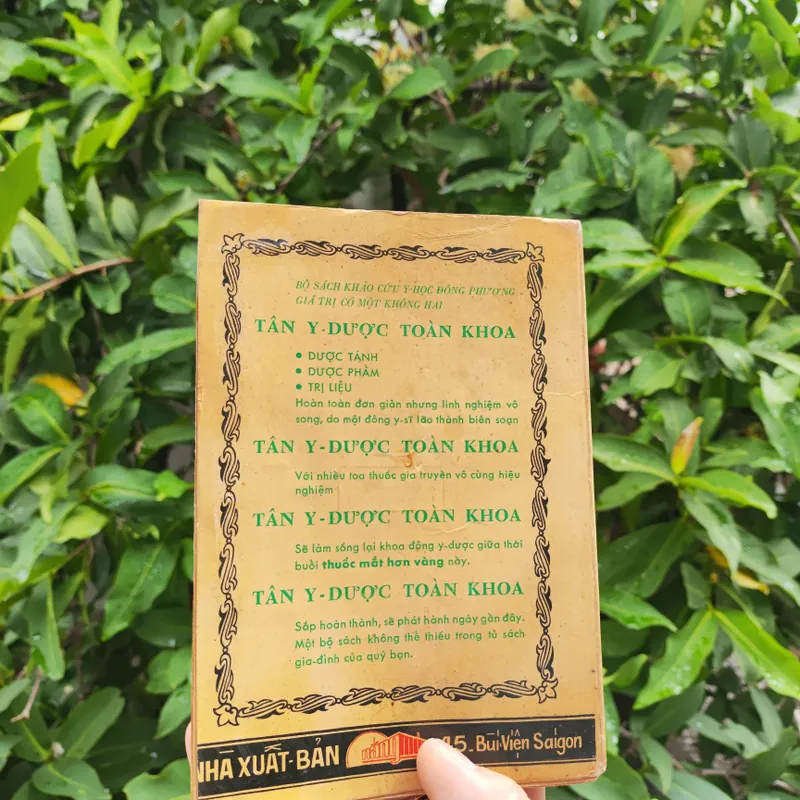 BỘ SÁCH KHẢO CỨU Y-HỌC ĐÔNG PHƯƠNG
GIÁ TRỊ CÓ MỘT KHÔNG HAI
TÂN Y-DƯỢC TOÀN KHOA
• DƯỢC TÁNH
• DƯỢC PHẨM
• TRỊ LIỆU
Hoàn toàn đơn giản nhưng linh nghiệm vô
song, do một đông y-sĩ lão thành biên soạn
TÂN Y-DƯỢC TOÀN KHOA
Với nhiều loa thuốc gia truyền vô cùng hiệu
nghiệm
TÂN Y-DƯỢC TOÀN KHOA
Sẽ làm sống lại khoa động y-dược giữa thời
buổi thuốc mắt hơn vàng này.
TÂN Y-DƯỢC TOÀN KHOA
Sắp hoàn thành, sẽ phát hành ngày gần đây.
Một bộ sách không thể thiếu trong tủ sách
gia-đình của quý bạn.
NHÀ XUẤT-BẢN 45_Bùi-Viện Saigon